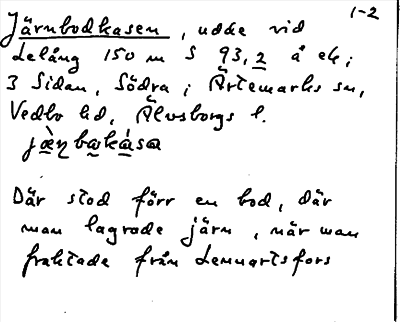 1-2
Järnbodkasen, udde vid
Lelång 150 m S 93,2 å ek;
3 Sidan, Södra i Ärtemarks sn,
Vedbo hd, Älvsborgs l.
Där stod förr en bod, där
man lagrade järn, när man
fraktade från Lennartsfors